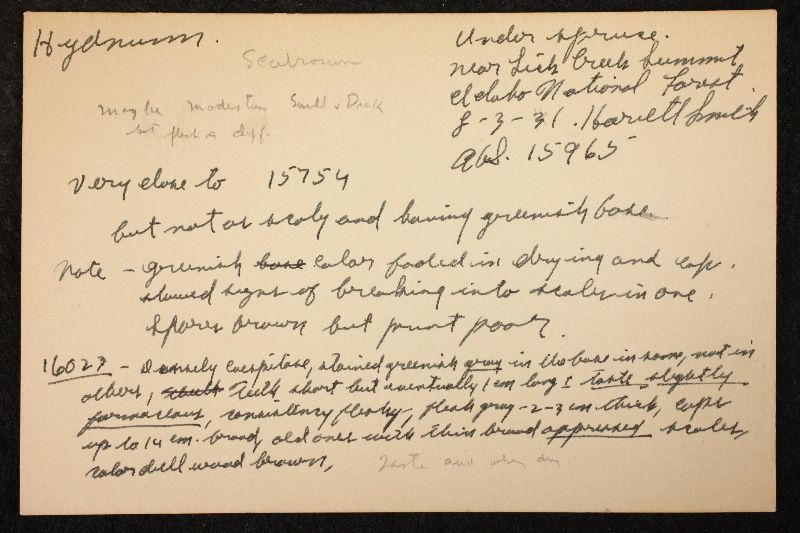 Hydnum.
Under spruce.
near Lick Creek Summit
Eldoho National Forest
8-3-31. Harlett Smith
AHS. 15965
may be modestum Snell & Dick
but flesh is diff.
Very close to 15754
but not as scaly and having greenish base.
Note - greenish base color faded in drying and cap.
showed signs of breaking into scales in one.
Spores brown but print poor.
16023 - Densely caespitose, stained greenish gray in the base in some, not in
others, teeth short but eventually 1 cm long ± taste slightly
farinaceous, consistency fleshy, flesh gray - 2-3 cm thick, caps
up to 14 cm. broad, old ones with thin broad appressed scales,
color dull wood brown,
Taste acid when dry